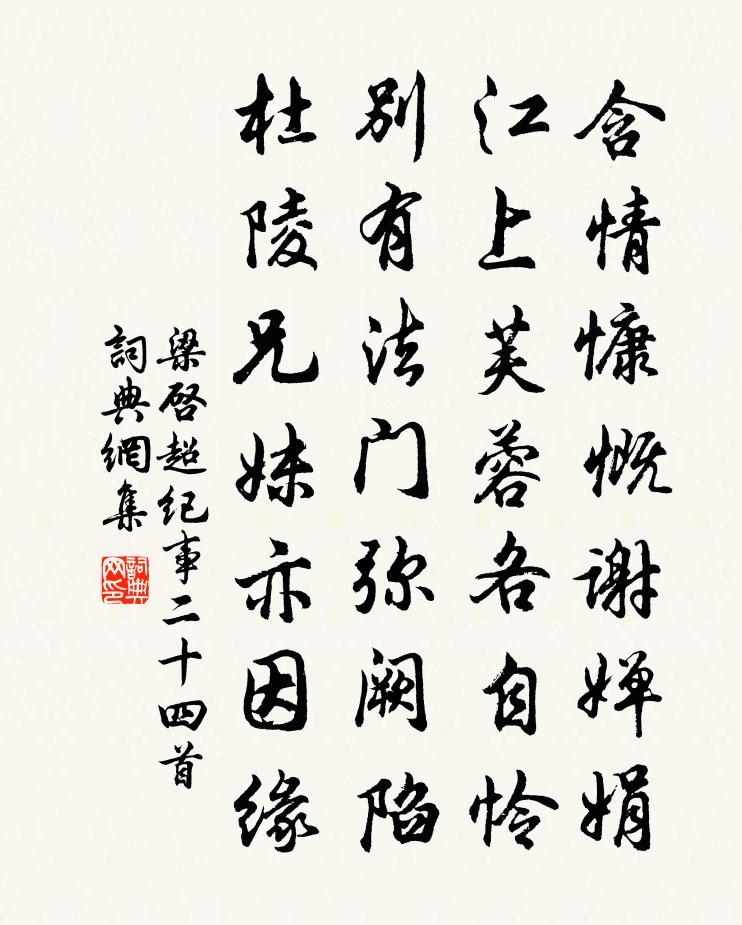 含情慷慨謝嬋娟
江上芙蓉各自怜
別有法门弥闕陷
杜陵兄妹亦因緣
梁啓超纪事二十四首
詞典網集
詞典
网印